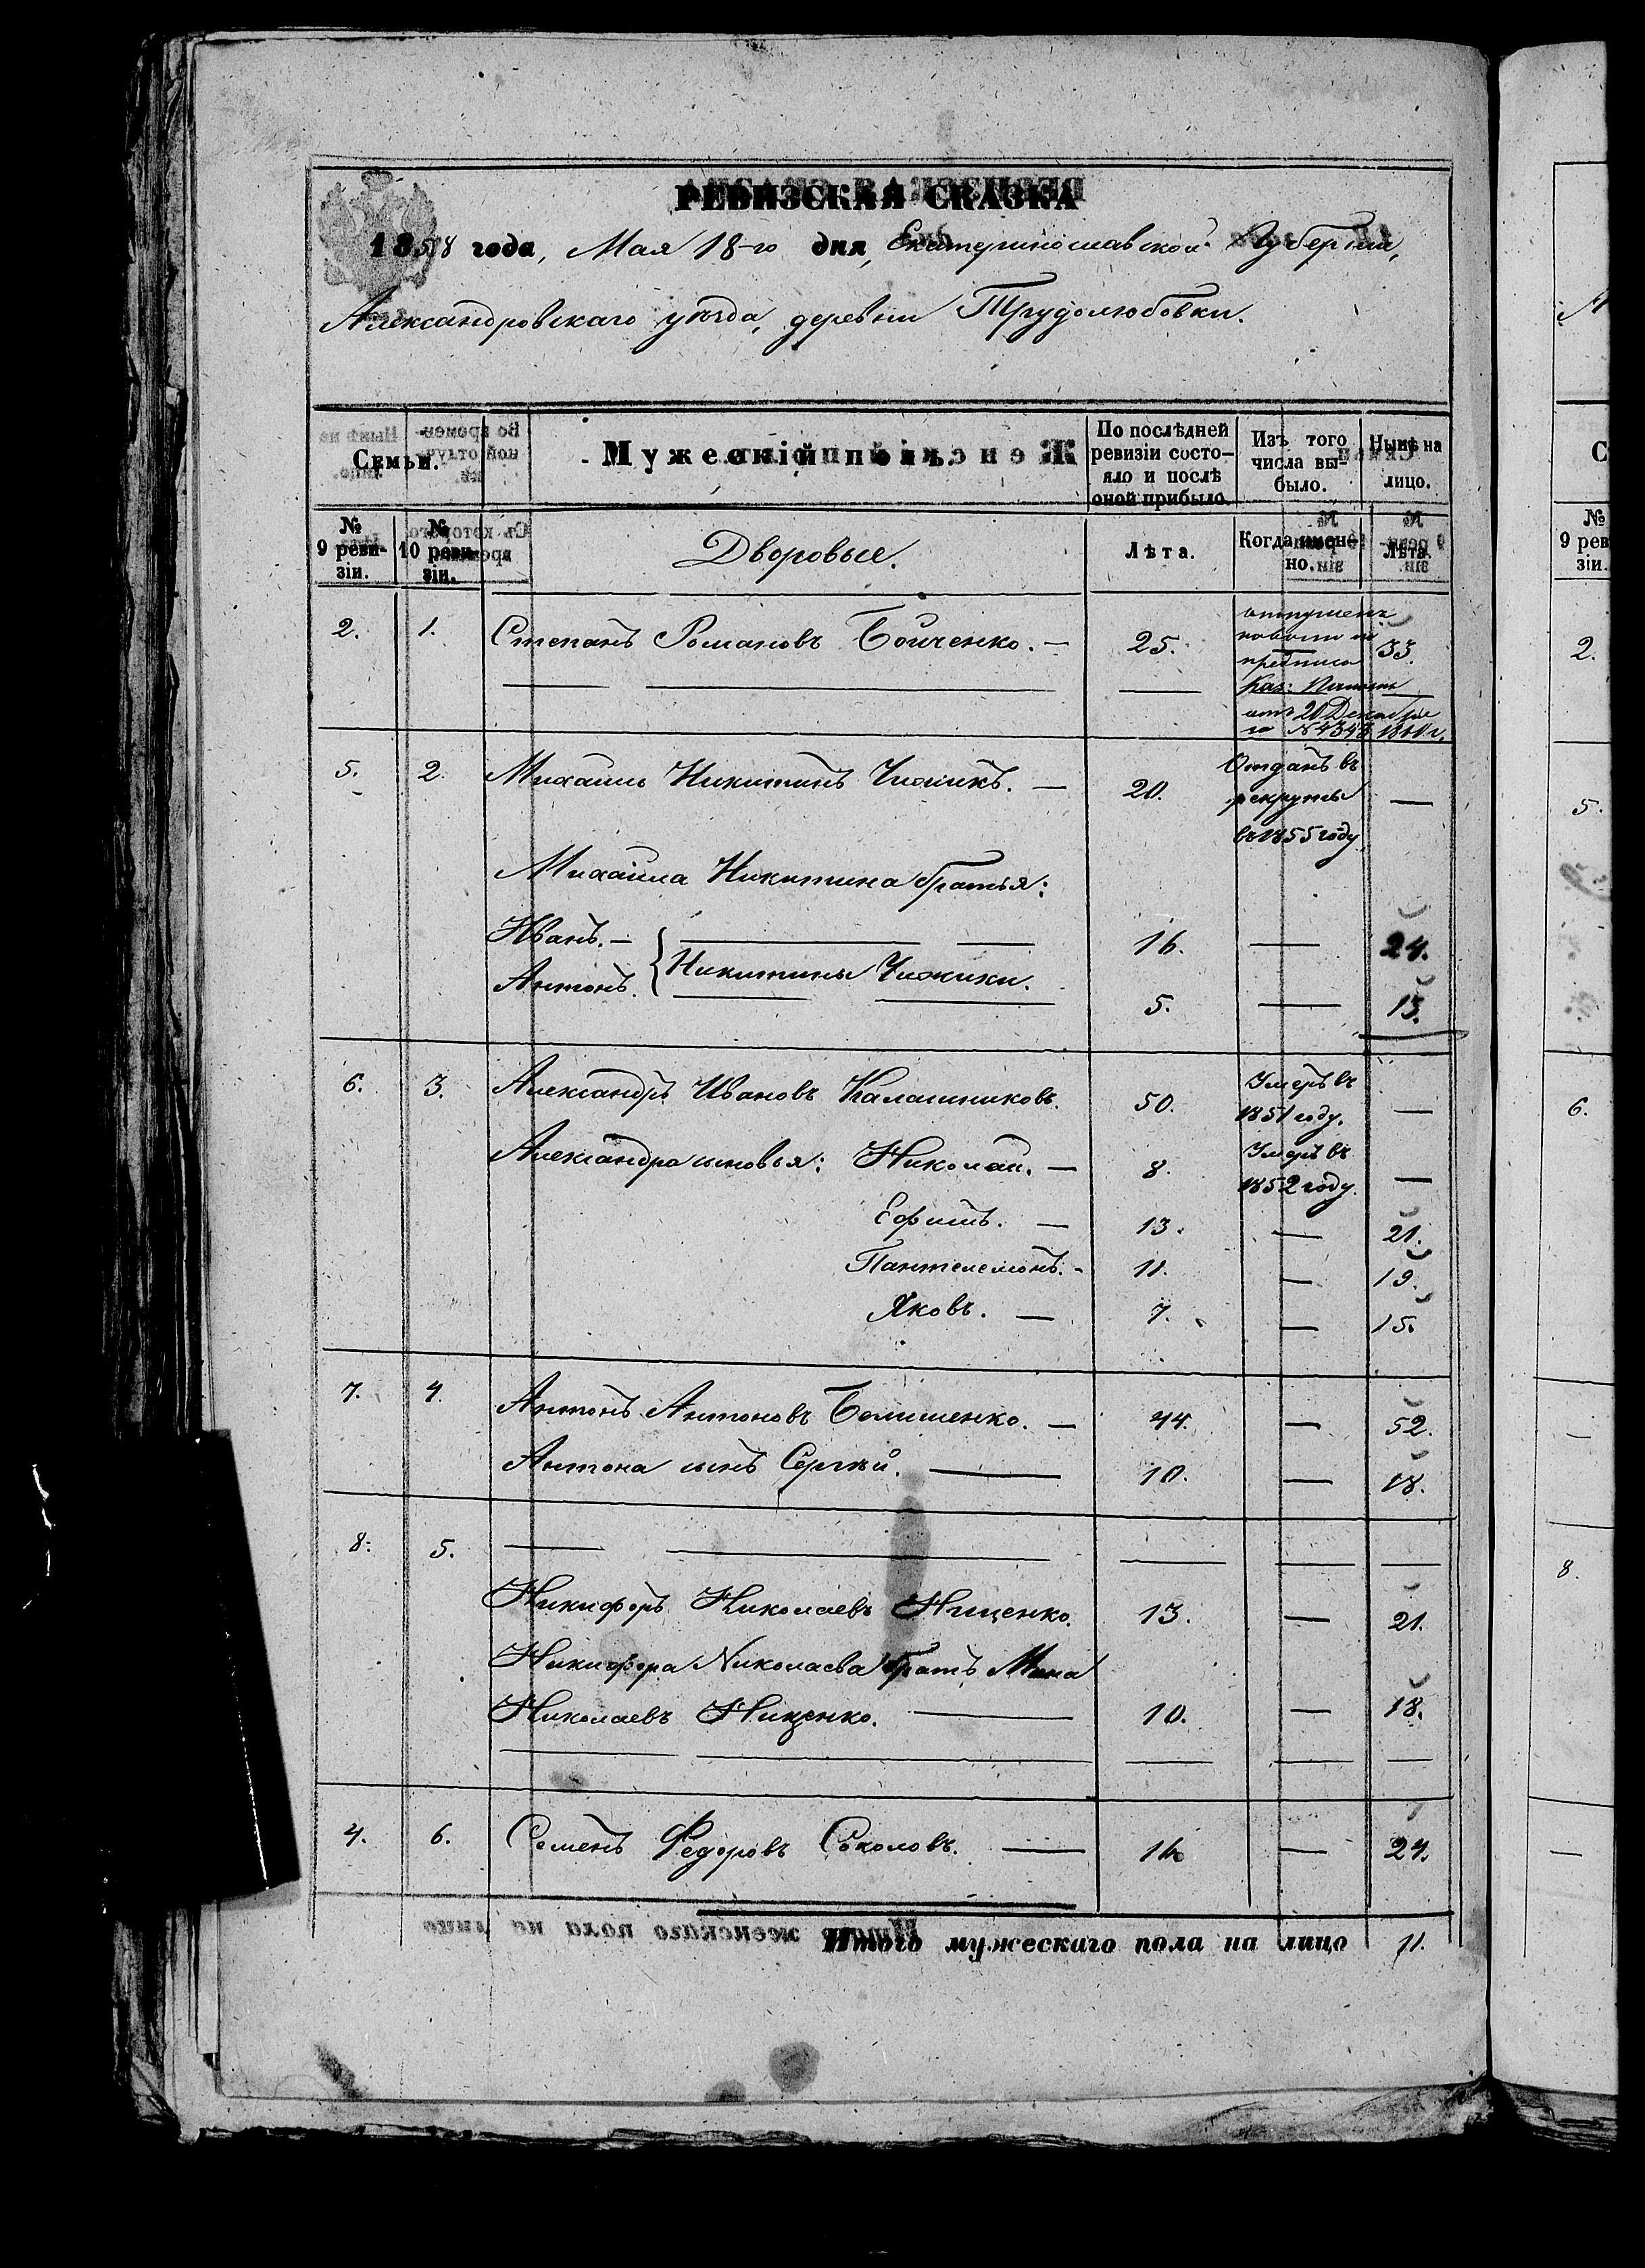 РЕВИЗСКАЯ СКАЗКА
1858 года, Мая 18-го дня, Екатеринославской Губерніи,
Александровскаго уѣзда, деревни Трудолюбовки.
Семьи. Мужескій полъ. По послѣдней ревизіи состояло и послѣ оной прибыло. Изъ того числа выбыло. Нынѣ на лицо.
№ 9 ревизіи. № 10 ревизіи. Дворовые. Лѣта. Когда именно. Лѣта.
2. 1. Степанъ Романовъ Бойченко. — 25. 33.
отъ 20 Декабря
5. 2. Михаилъ Никитинъ Чижикъ. — 20. Отданъ въ рекруты въ 1855 году —
Михаила Никитина братья:
Иванъ. — 16. — 24.
Никитины Чижики.
Антонъ. 5. — 13.
6. 3. Александръ Ивановъ Калашниковъ. 50. Умеръ въ 1851 году. —
Александра сыновья: Николай. — 8. Умеръ въ 1852 году. —
Ефимъ. — 13. — 21.
Пантелемонъ. - 11. — 19.
Яковъ. — 7. — 15.
7. 4. Антонъ Антоновъ — 44. — 52.
Антона сынъ Сергѣй. — 10. — 18.
8. 5. — — — — —
Никифоръ Николаевъ Ниценко. 13. — 21.
Никифора Николаева братъ Мина
Николаевъ Ниценко. — 10. — 18.
4. 6. Семенъ Федоровъ Соколовъ. — 16 — 24.
Итого мужескаго пола на лицо 11.
№ 9 рев зіи.
2.
5.
6.
8.